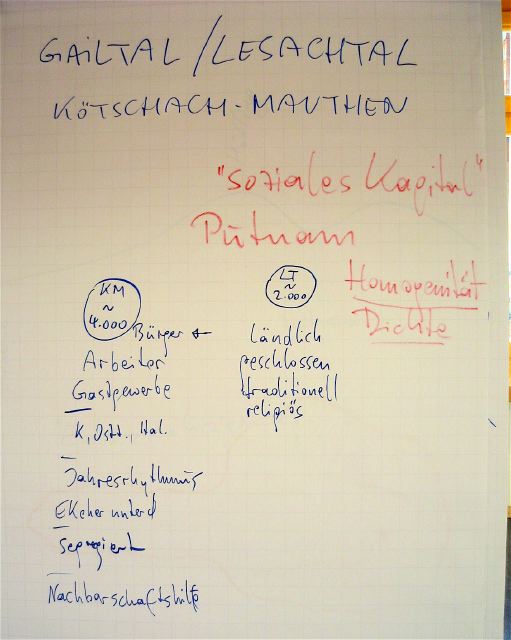 GAILTAL / LESACHTAL
KÖTSCHACH-MAUTHEN
"soziales Kapital"
Putnam
Homogenität
Dichte
KM
~
4.000
Bürger +
Arbeiter
Gastgewerbe
K, Ostt., Ital.
Jahresrhythmus
EK eher unterd
segregiert
Nachbarschaftshilfe
LT
~
2.000
ländlich
geschlossen
traditionell
religiös